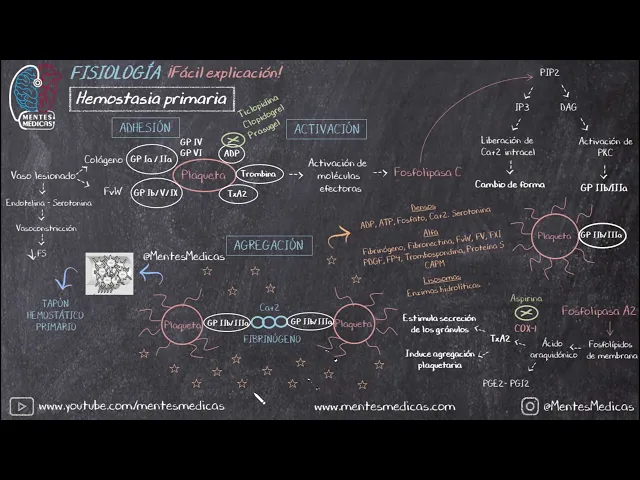 FISIOLOGÍA ¡Fácil explicación!
MENTES MÉDICAS!
Hemostasia primaria
ADHESIÓN
Ticlopidina
Clopidogrel
Prasugel
ACTIVACIÓN
Vaso lesionado
Endotelina - Serotonina
Vasoconstricción
↓FS
Colágeno
FvW
GP Ia / IIa
GP Ib/V/IX
GP IV
GP VI
Plaqueta
ADP
Trombina
TxA2
Activación de
moléculas
efectoras
Fosfolipasa C
PIP2
IP3
DAG
Liberación de
Ca+2 intracel
Cambio de forma
Activación de
PKC
GP IIb/IIIa
Plaqueta
GP IIb/IIIa
AGREGACIÓN
Densos
ADP, ATP, Fosfato, Ca+2. Serotonina
Alfa
Fibrinógeno, Fibronectina, FvW, FV, FXI
PDGF, FP4, Trombospondina, Proteína S
CAPM
Lisosomas
Enzimas hidrolíticas
@MentesMedicas
TAPÓN
HEMOSTÁTICO
PRIMARIO
Plaqueta
GP IIb/IIIa
Ca+2
FIBRINÓGENO
GP IIb/IIIa
Plaqueta
Estimula secreción
de los gránulos
Induce agregación
plaquetaria
TxA2
Aspirina
COX-1
Ácido
araquidónico
PGE2- PGI2
Fosfolipasa A2
Fosfolípidos
de membrana
www.youtube.com/mentesmedicas
www.mentesmedicas.com
@MentesMedicas